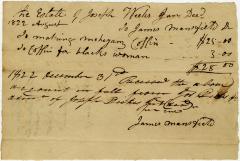 The Estate of Joseph Weeks Jnr Decd
1822 August To James Mansfield Dr
To making mahogany Coffin $25=00
To Coffin for blacks woman 3=00
$28=00
1822 December 31 Received the above
account in full from
of Joseph Weeks
James Mansfield